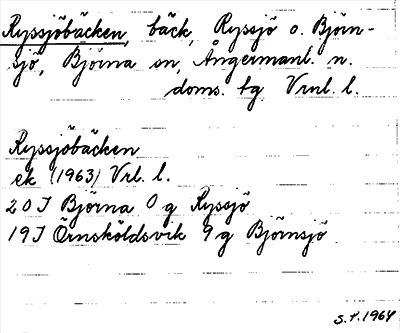 Ryssjöbäcken, bäck, Ryssjö o. Björn-
sjö, Björna sn, Ångermanl. n.
doms. tg Vrnl. l.
Ryssjöbäcken
ek (1963) Vrl. l.
20J Björna 0 g Ryssjö
19J Örnsköldsvik 9 g Björnsjö
S.T. 1964